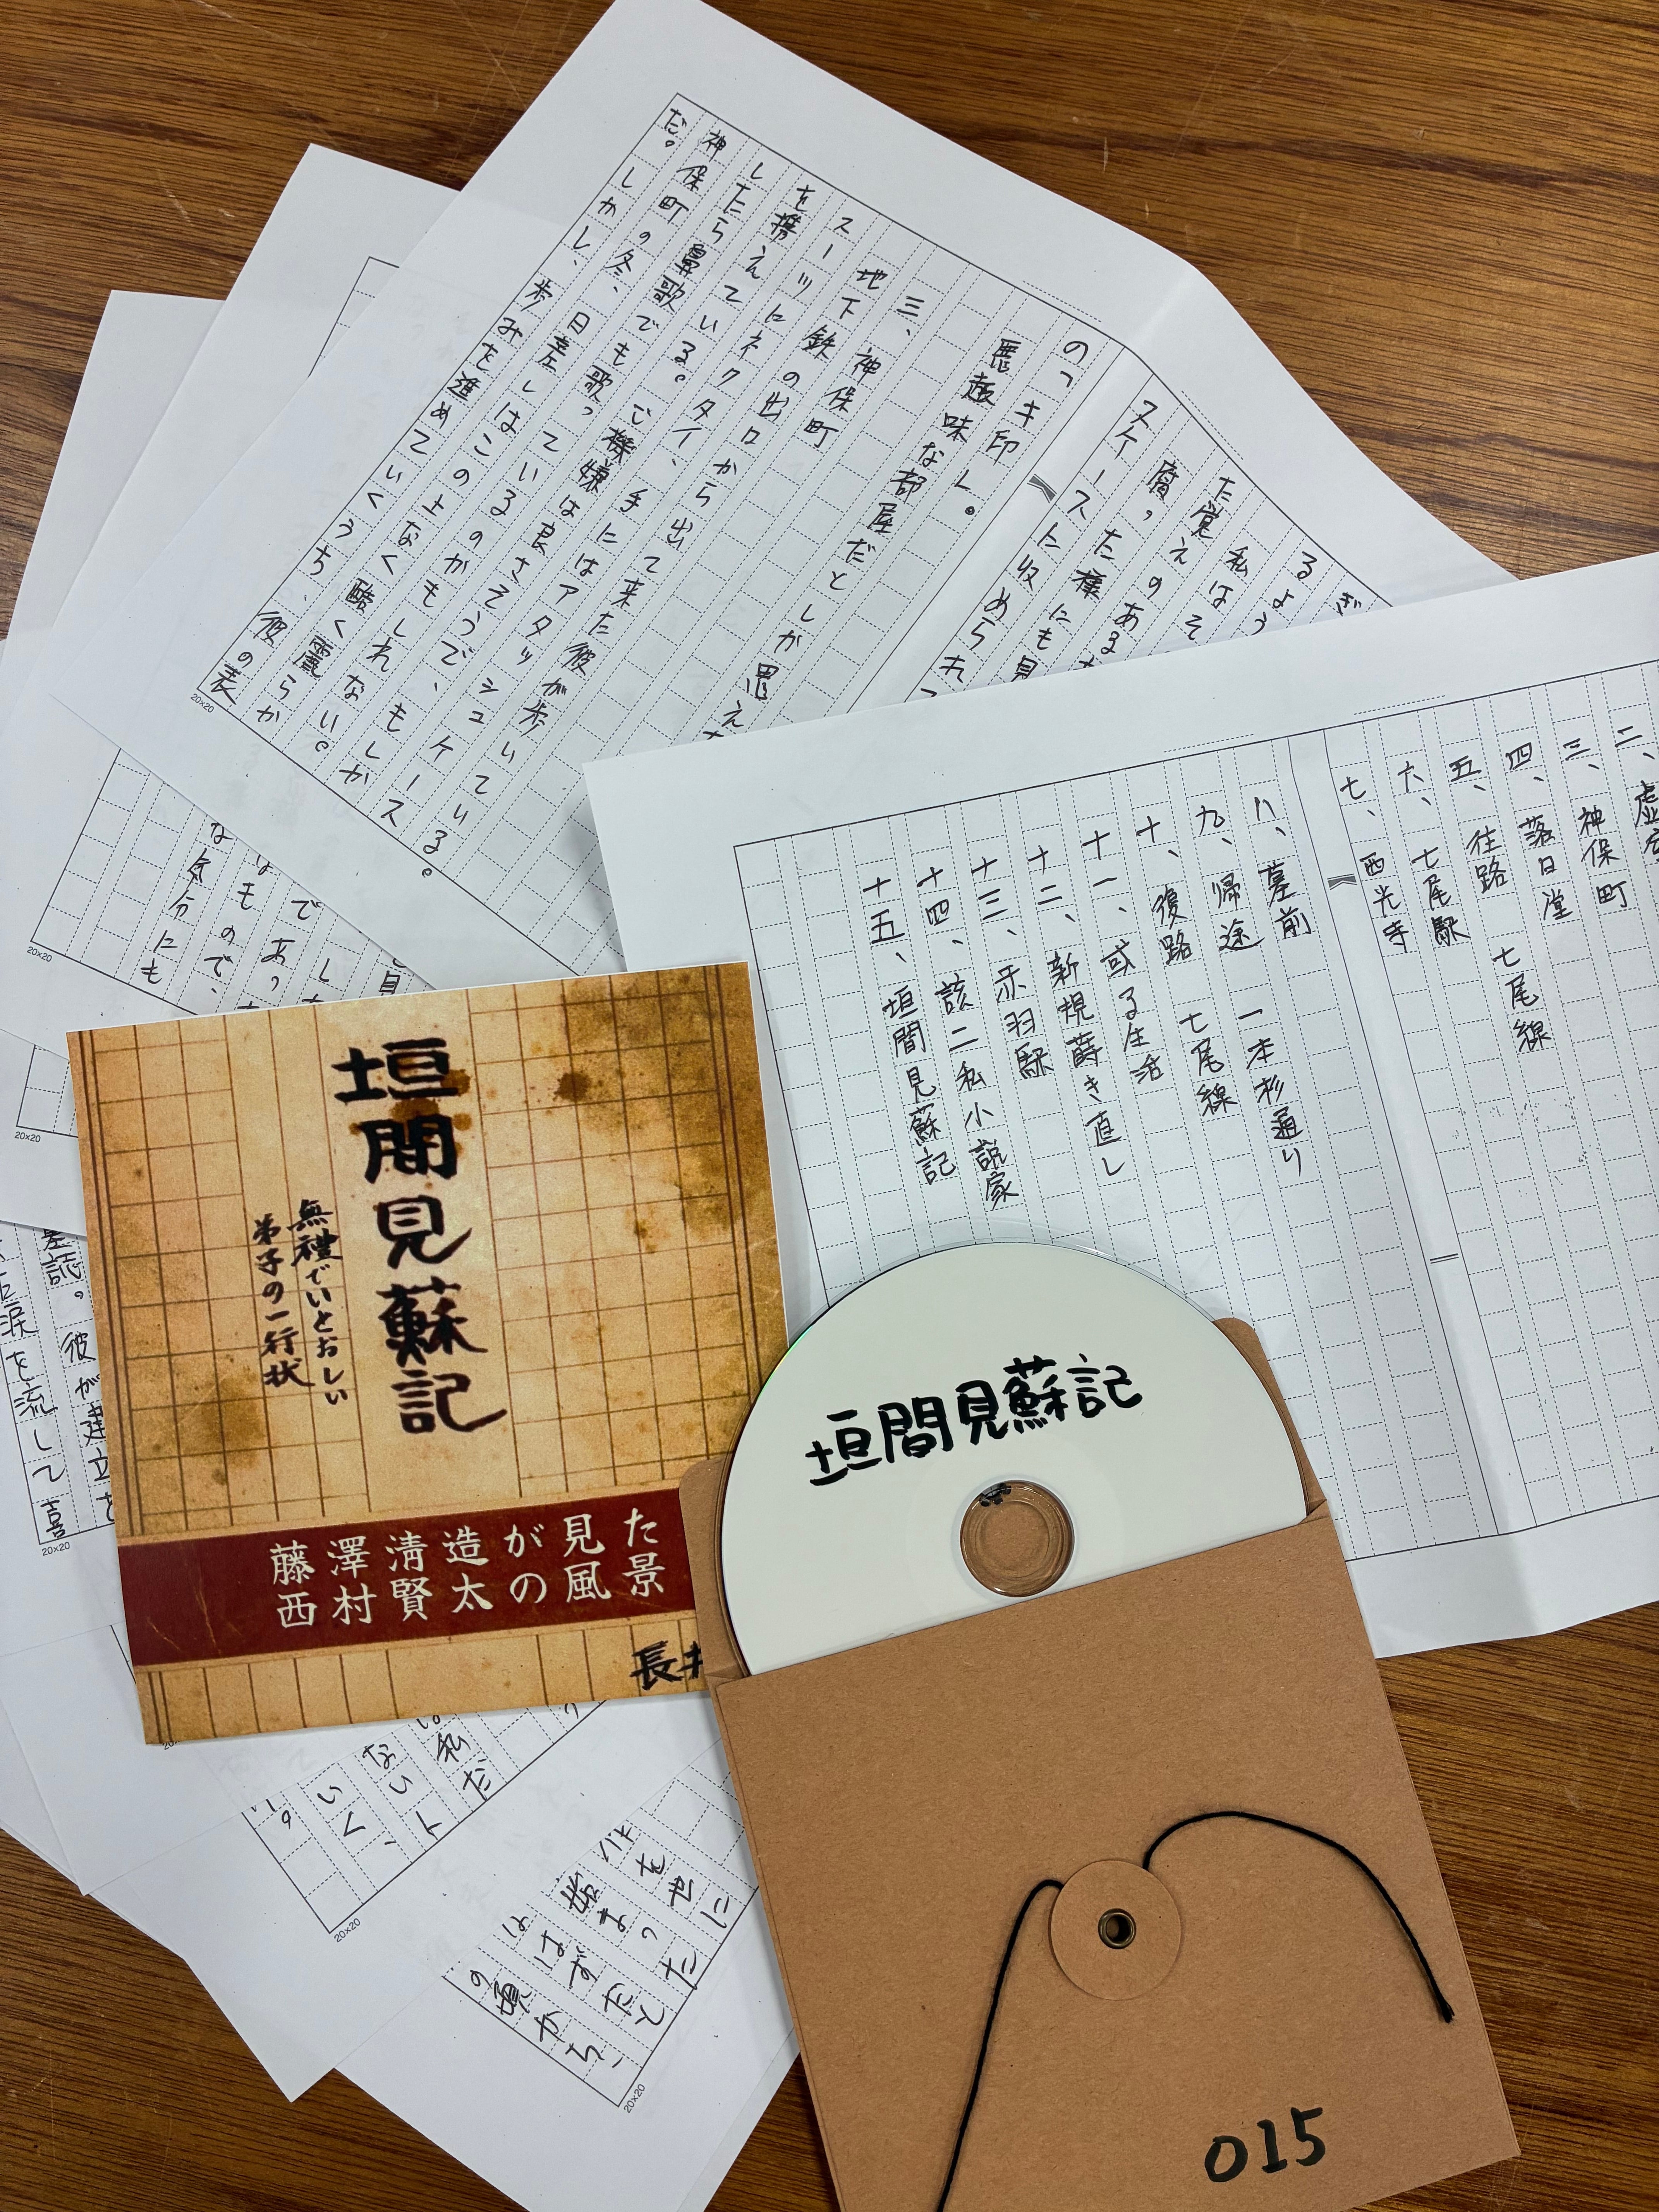 の「キ印」。
悪趣味な部屋だとしか思え
三、神保町
地下鉄の出口から出て来た彼が歩いている。
スーツにネクタイ、手にはアタッシュケース
を携えている。ご機嫌は良さそうで、もしか
したら鼻歌でも歌っているのかもしれない。
神保町の冬、日差しはこの上なく酷く麗らか
だ。しかし、歩みを進めていくうち、彼の表
20×20
るよう
私はそ
た覚えのある
腐った様にも見
スケースに収められ
三、神保町
四、落日堂
五、往路 七尾線
六、七尾駅
七、西光寺
八、墓前
九、帰途 一本杉通り
十、復路 七尾線
十一、或る生活
十二、新規蒔き直し
十三、赤羽駅
十四、該二私小説家
十五、垣間見蘇記
であっ
なもので、
な気分にも
20×20
20×20
彼が建立
た涙を流して喜
20×20
垣間見蘇記
無禮でいとおしい
弟子の一行状
藤澤淸造が見た
西村賢太の風景
長井
垣間見蘇記
015
私だ
ない
いく、
20×20
始まった
はずだと
の頃から、
20×20